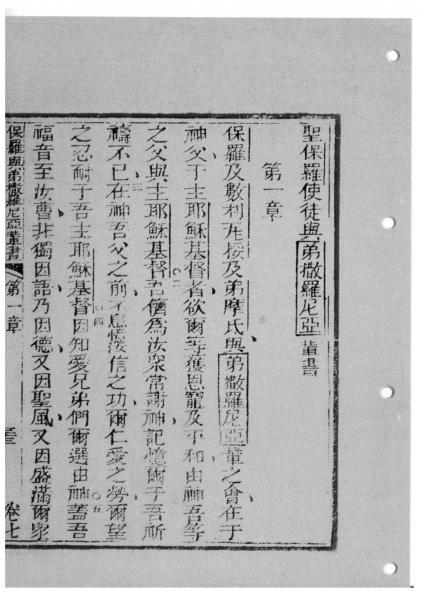 聖保羅使徒與弟撒羅尼亞輩書
第一章
保羅及數利瓦挼及弟摩氏與弟撒羅尼亞輩之會在于
神父于主耶穌基督者欲爾等獲恩寵及平和由神吾等
之父與主耶穌基督吾儕為汝眾常謝神記憶爾于吾祈
禱不已在神吾父之前不怠爾信之功爾仁愛之勞爾望
之忍耐于吾主耶穌基督因知愛兄弟們爾選由神蓋吾
福音至汝曹非獨因語乃因德又因聖風又因盛滿爾眾
保羅與弟撒羅尼亞輩書 第一章 卷七